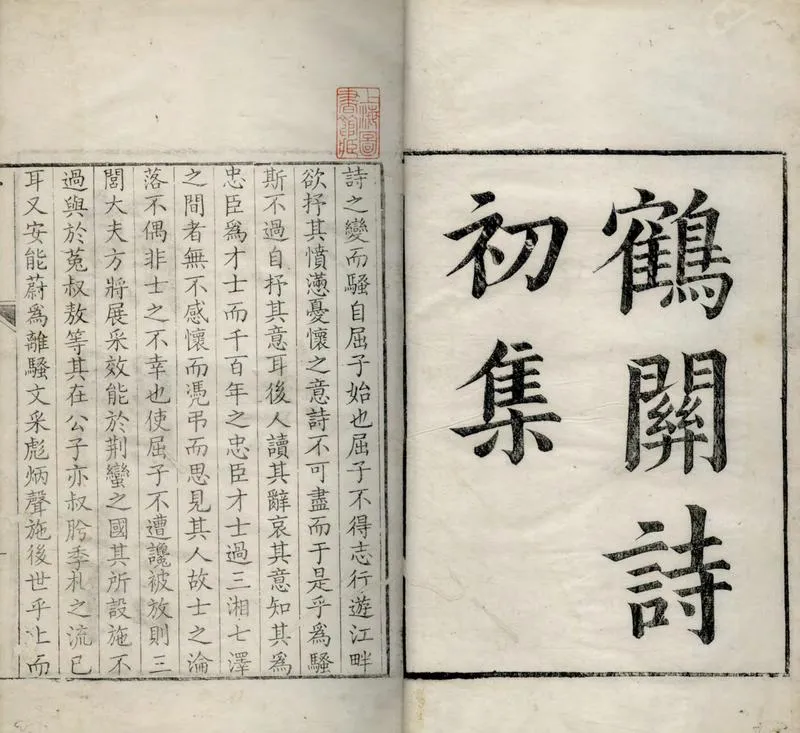 鶴關詩
初集
上海圖
書館藏
詩之變而騷自屈子始也屈子不得志行遊江畔
欲抒其憤懣憂懷之意詩不可盡而于是乎爲騷
斯不過自抒其意耳後人讀其辭哀其意知其爲
忠臣爲才士而千百年之忠臣才士過三湘七澤
之間者無不感懷而憑弔而思見其人故士之淪
落不偶非士之不幸也使屈子不遭讒被放則三
閭大夫方將展采效能於荆蠻之國其所設施不
過與於菟叔敖等其在公子亦叔肸季札之流已
耳又安能蔚爲離騷文采彪炳聲施後世乎上而